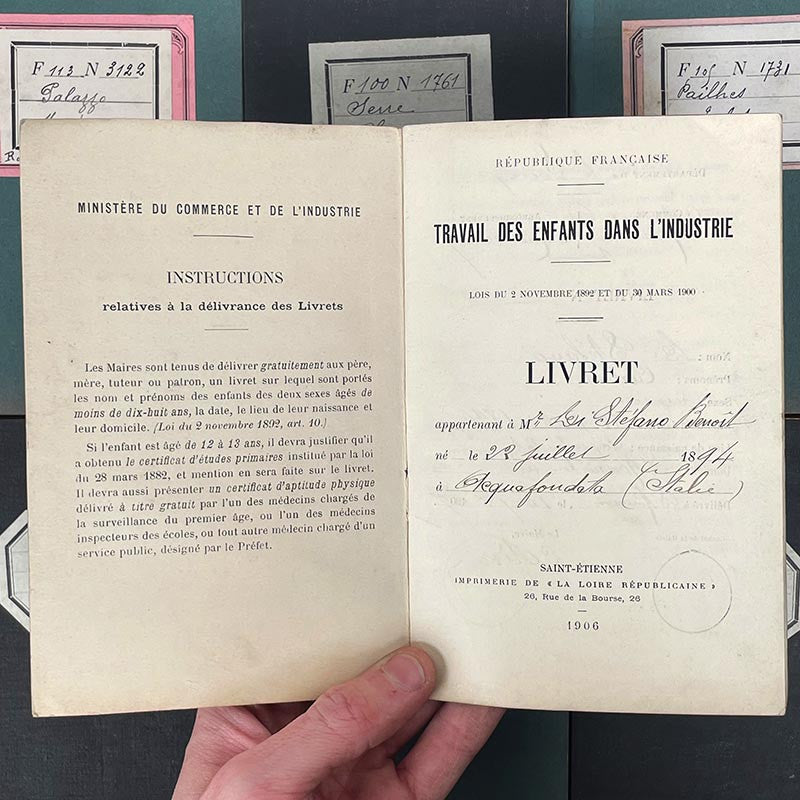 F 113 N 3122
Palazzo
F 100 N 1761
Serre
F 105 N 1731
Pailhes
MINISTÈRE DU COMMERCE ET DE L'INDUSTRIE
INSTRUCTIONS
relatives à la délivrance des Livrets
Les Maires sont tenus de délivrer gratuitement aux père,
mère, tuteur ou patron, un livret sur lequel sont portés
les nom et prénoms des enfants des deux sexes âgés de
moins de dix-huit ans, la date, le lieu de leur naissance et
leur domicile. (Loi du 2 novembre 1892, art. 10.)
Si l'enfant est âgé de 12 à 13 ans, il devra justifier qu'il
a obtenu le certificat d'études primaires institué par la loi
du 28 mars 1882, et mention en sera faite sur le livret.
Il devra aussi présenter un certificat d'aptitude physique
délivré à titre gratuit par l'un des médecins chargés de
la surveillance du premier âge, ou l'un des médecins
inspecteurs des écoles, ou tout autre médecin chargé d'un
service public, désigné par le Préfet.
RÉPUBLIQUE FRANÇAISE
TRAVAIL DES ENFANTS DANS L'INDUSTRIE
LOIS DU 2 NOVEMBRE 1892 ET DU 30 MARS 1900
LIVRET
appartenant à Mr Di Stéfano Benoît
né le 22 juillet 1894
à Acquafondata (Italie)
SAINT-ÉTIENNE
IMPRIMERIE DE « LA LOIRE RÉPUBLICAINE »
26, Rue de la Bourse, 26
1906